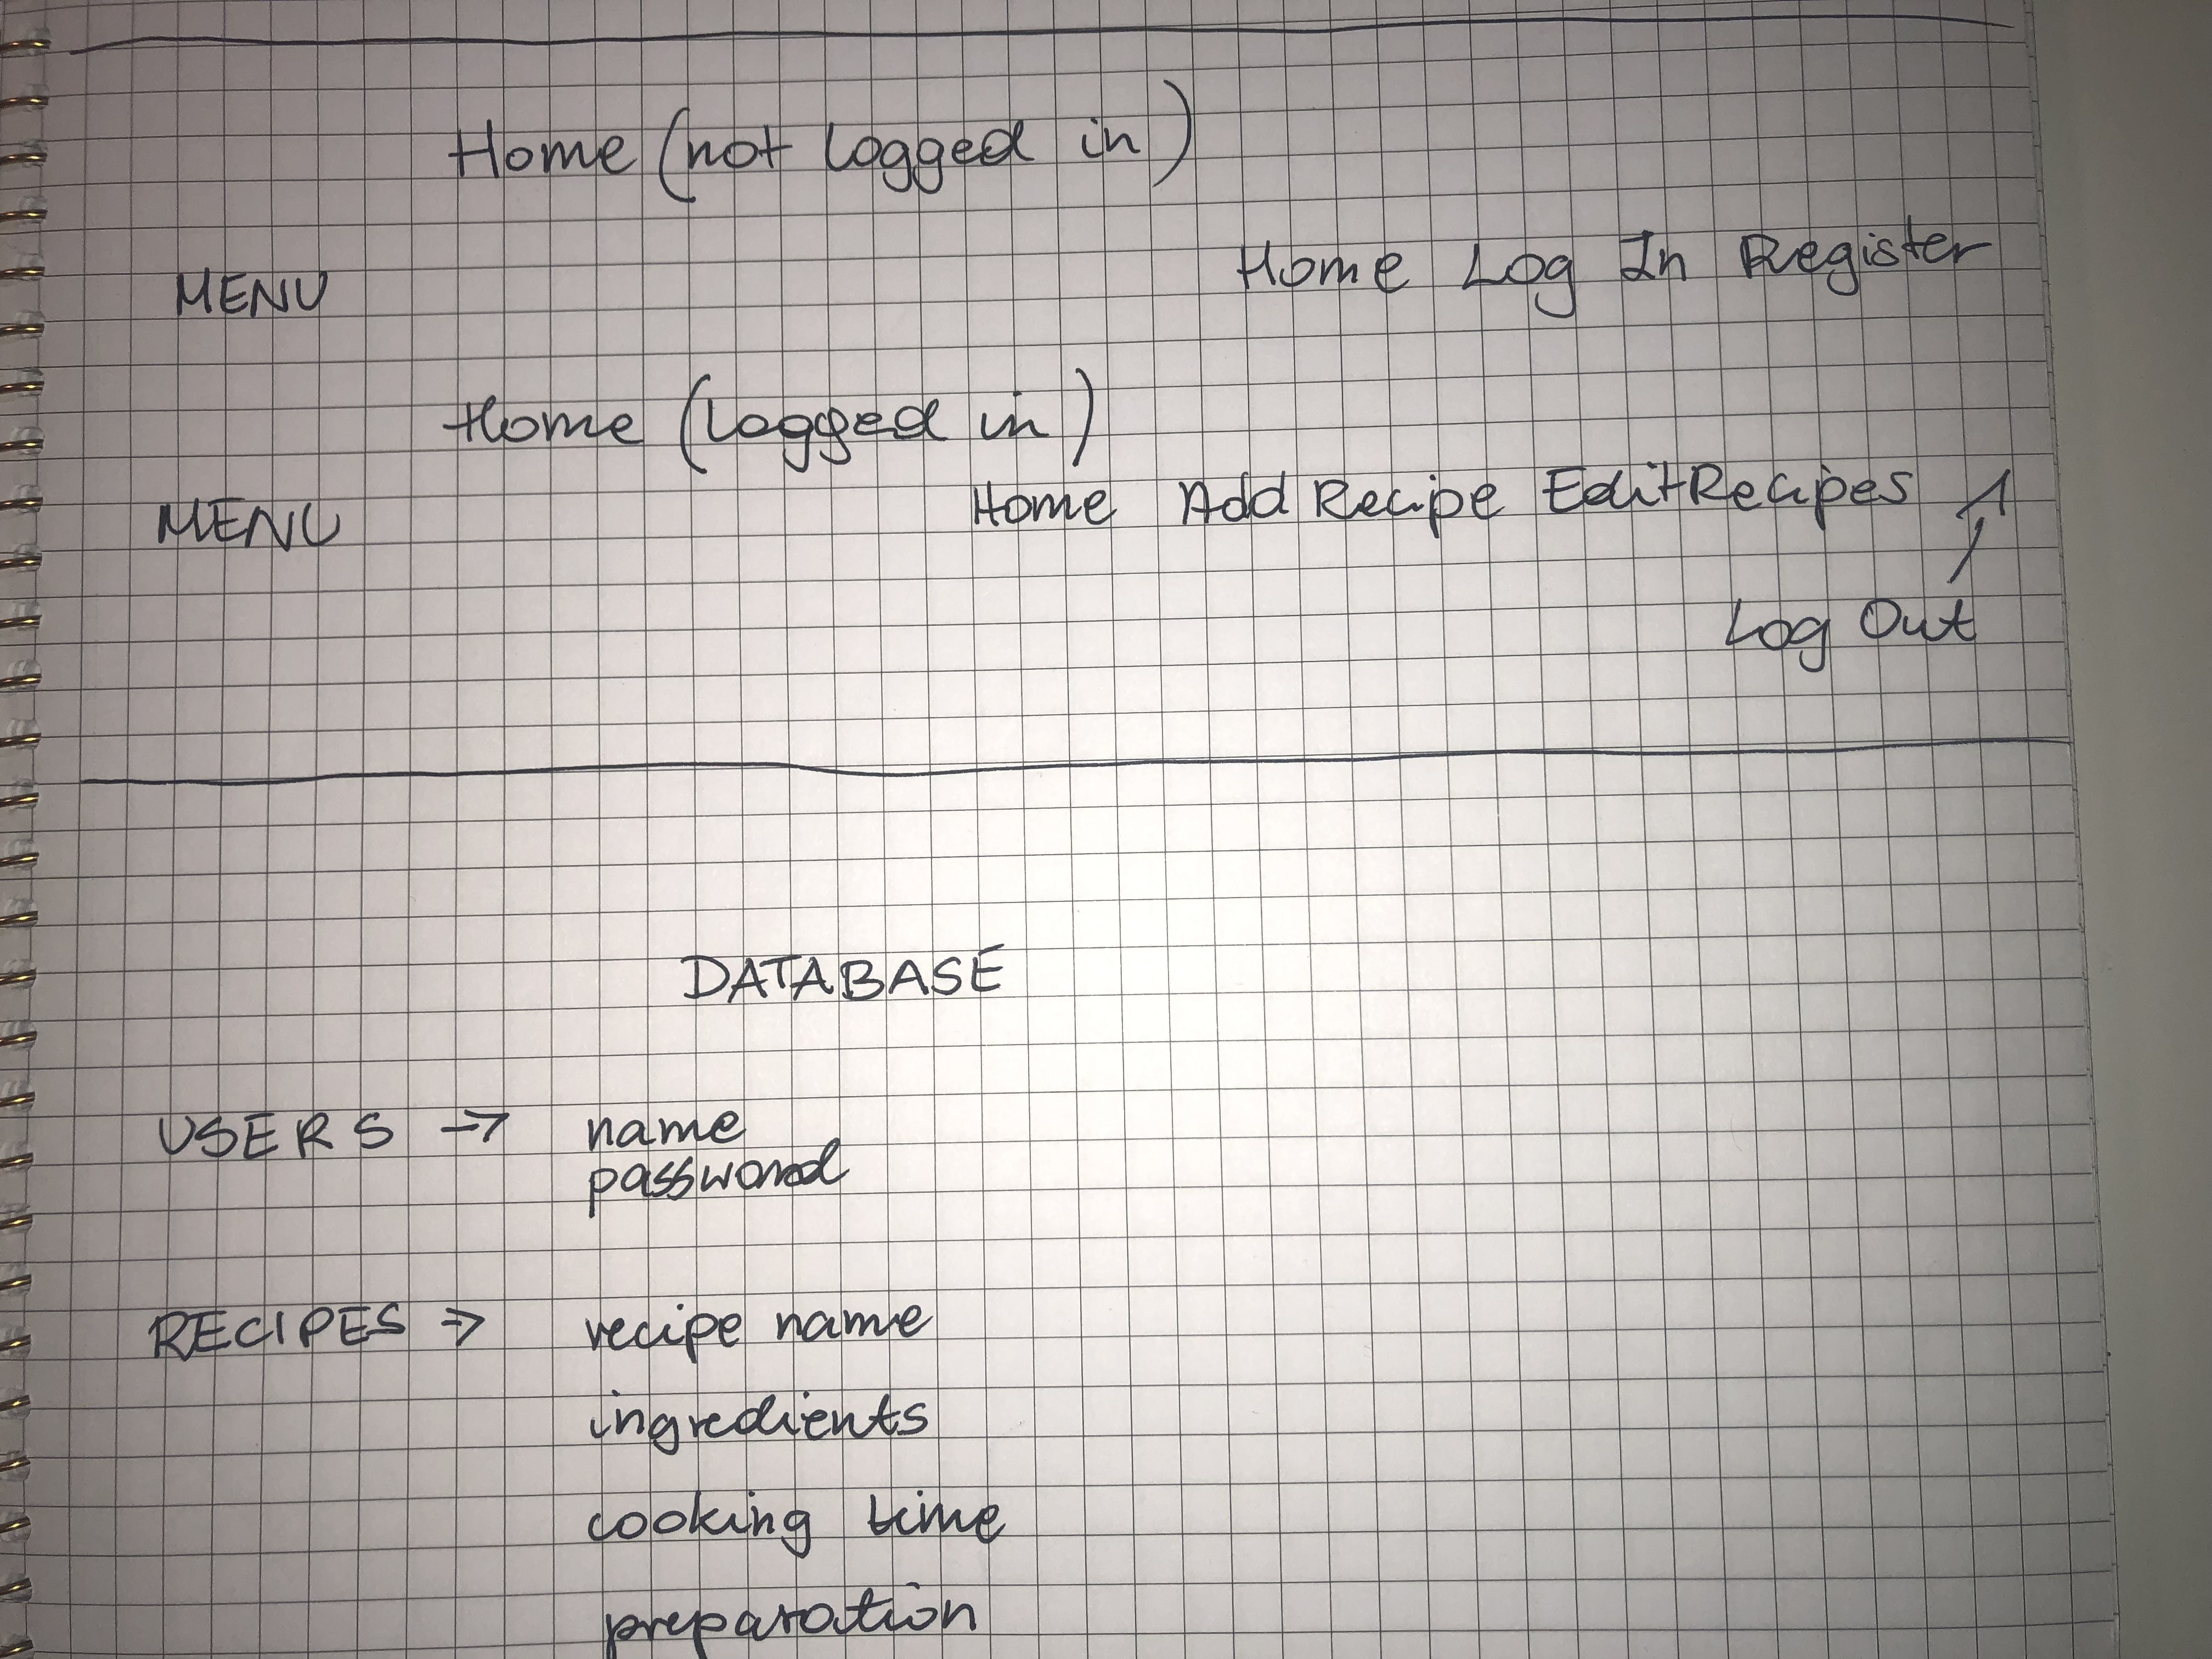 Home (not logged in)
MENU Home Log In Register
Home (logged in)
MENU Home Add Recipe Edit Recipes
Log Out
DATABASE
USERS → name
password
RECIPES → recipe name
ingredients
cooking time
preparation